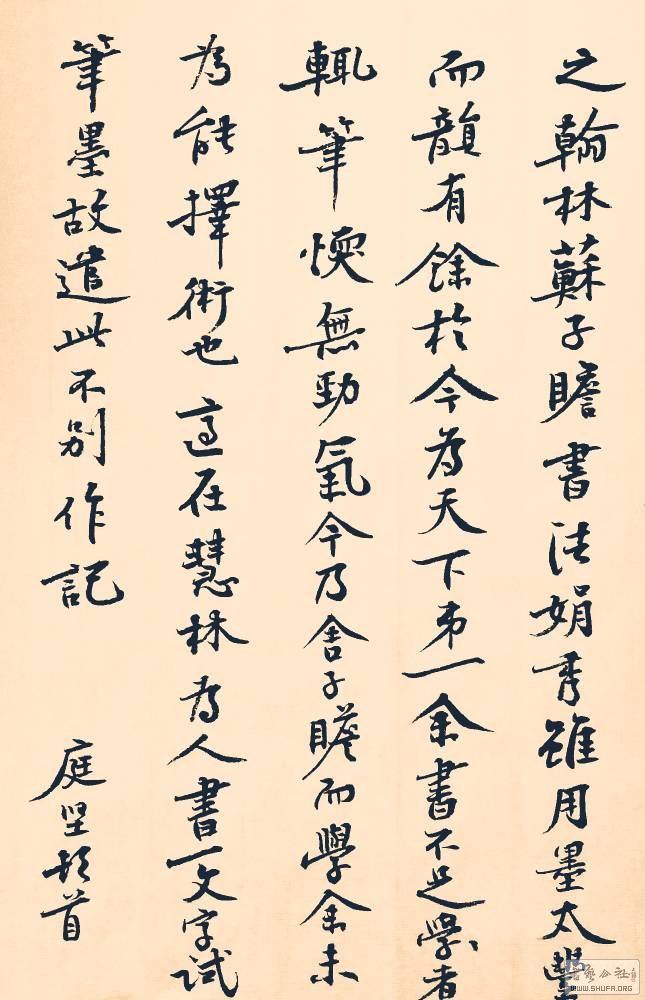 之翰林蘇子瞻書法娟秀雖用墨太豐
而韻有餘於今為天下弟一余書不足學者
輒筆愞無勁氣今乃舍子瞻而學余未
為能擇術也適在慧林為人書一文字試
筆墨故遣此不別作記
庭堅頓首
WWW.SHUFA.ORG